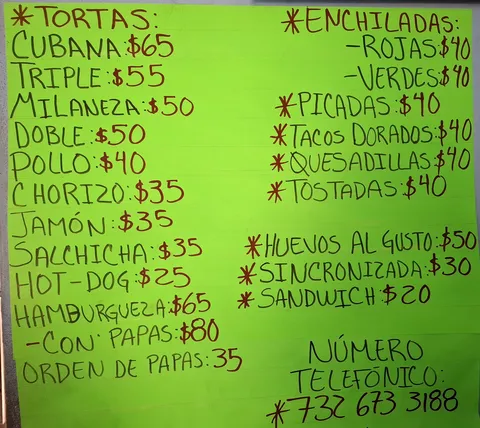 *TORTAS:
CUBANA:$65
TRIPLE:$55
MILANEZA:$50
DOBLE:$50
POLLO:$40
CHORIZO:$35
JAMÓN:$35
SALCHICHA:$35
HOT-DOG:$25
HAMBURGUEZA:$65
-CON PAPAS:$80
ORDEN DE PAPAS:35
*ENCHILADAS:
-ROJAS$40
-VERDES$40
*PICADAS:$40
*TACOS DORADOS:$40
*QUESADILLAS:$40
*TOSTADAS:$40
*HUEVOS AL GUSTO:$50
*SINCRONIZADA:$30
*SANDWICH:$20
NÚMERO
TELEFÓNICO:
*732 673 3188